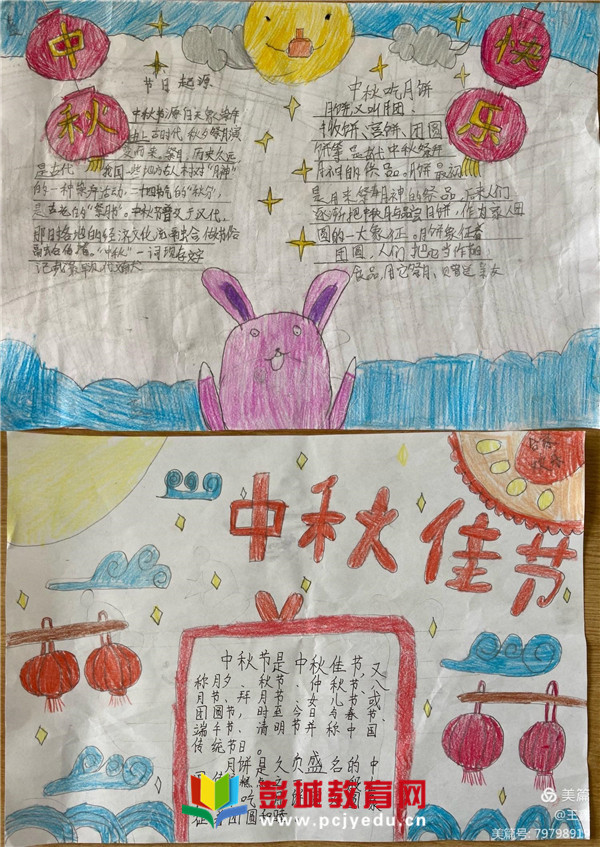 中
秋
快
乐
节日起源
中秋节源自天象崇拜
由上古时代秋夕祭月演
变而来。祭月,历史久远
是古代我国一些地方古人对"月神"
的一种崇拜活动,二十四节气的"秋分",
是古老的"祭月节"。中秋节普及于汉代,
"中秋"一词现存文字
记载最早见于汉代
中秋吃月饼
月饼,又叫月团、
饼、宫饼、团圆
饼等,是古代中秋祭拜
月神的供品。月饼最初
是用来祭拜月神的供品,后来人们
逐渐把中秋月品尝月饼,作为家人团
圆的一大象征。月饼象征着
团圆,人们把它当作节日
食品,用它祭月、赠送亲友
中秋佳节
中秋节是中秋佳节,又
称月夕、秋节、仲秋节、八
月节、拜月节、女儿节或
团圆节,时至今日与春节、
端午节、清明节并称中国
传统节日。
月饼是久负盛名的中
团圆和睦
彭城教育网
www.pcjyedu.cn
美篇
@王
美篇号:79798919